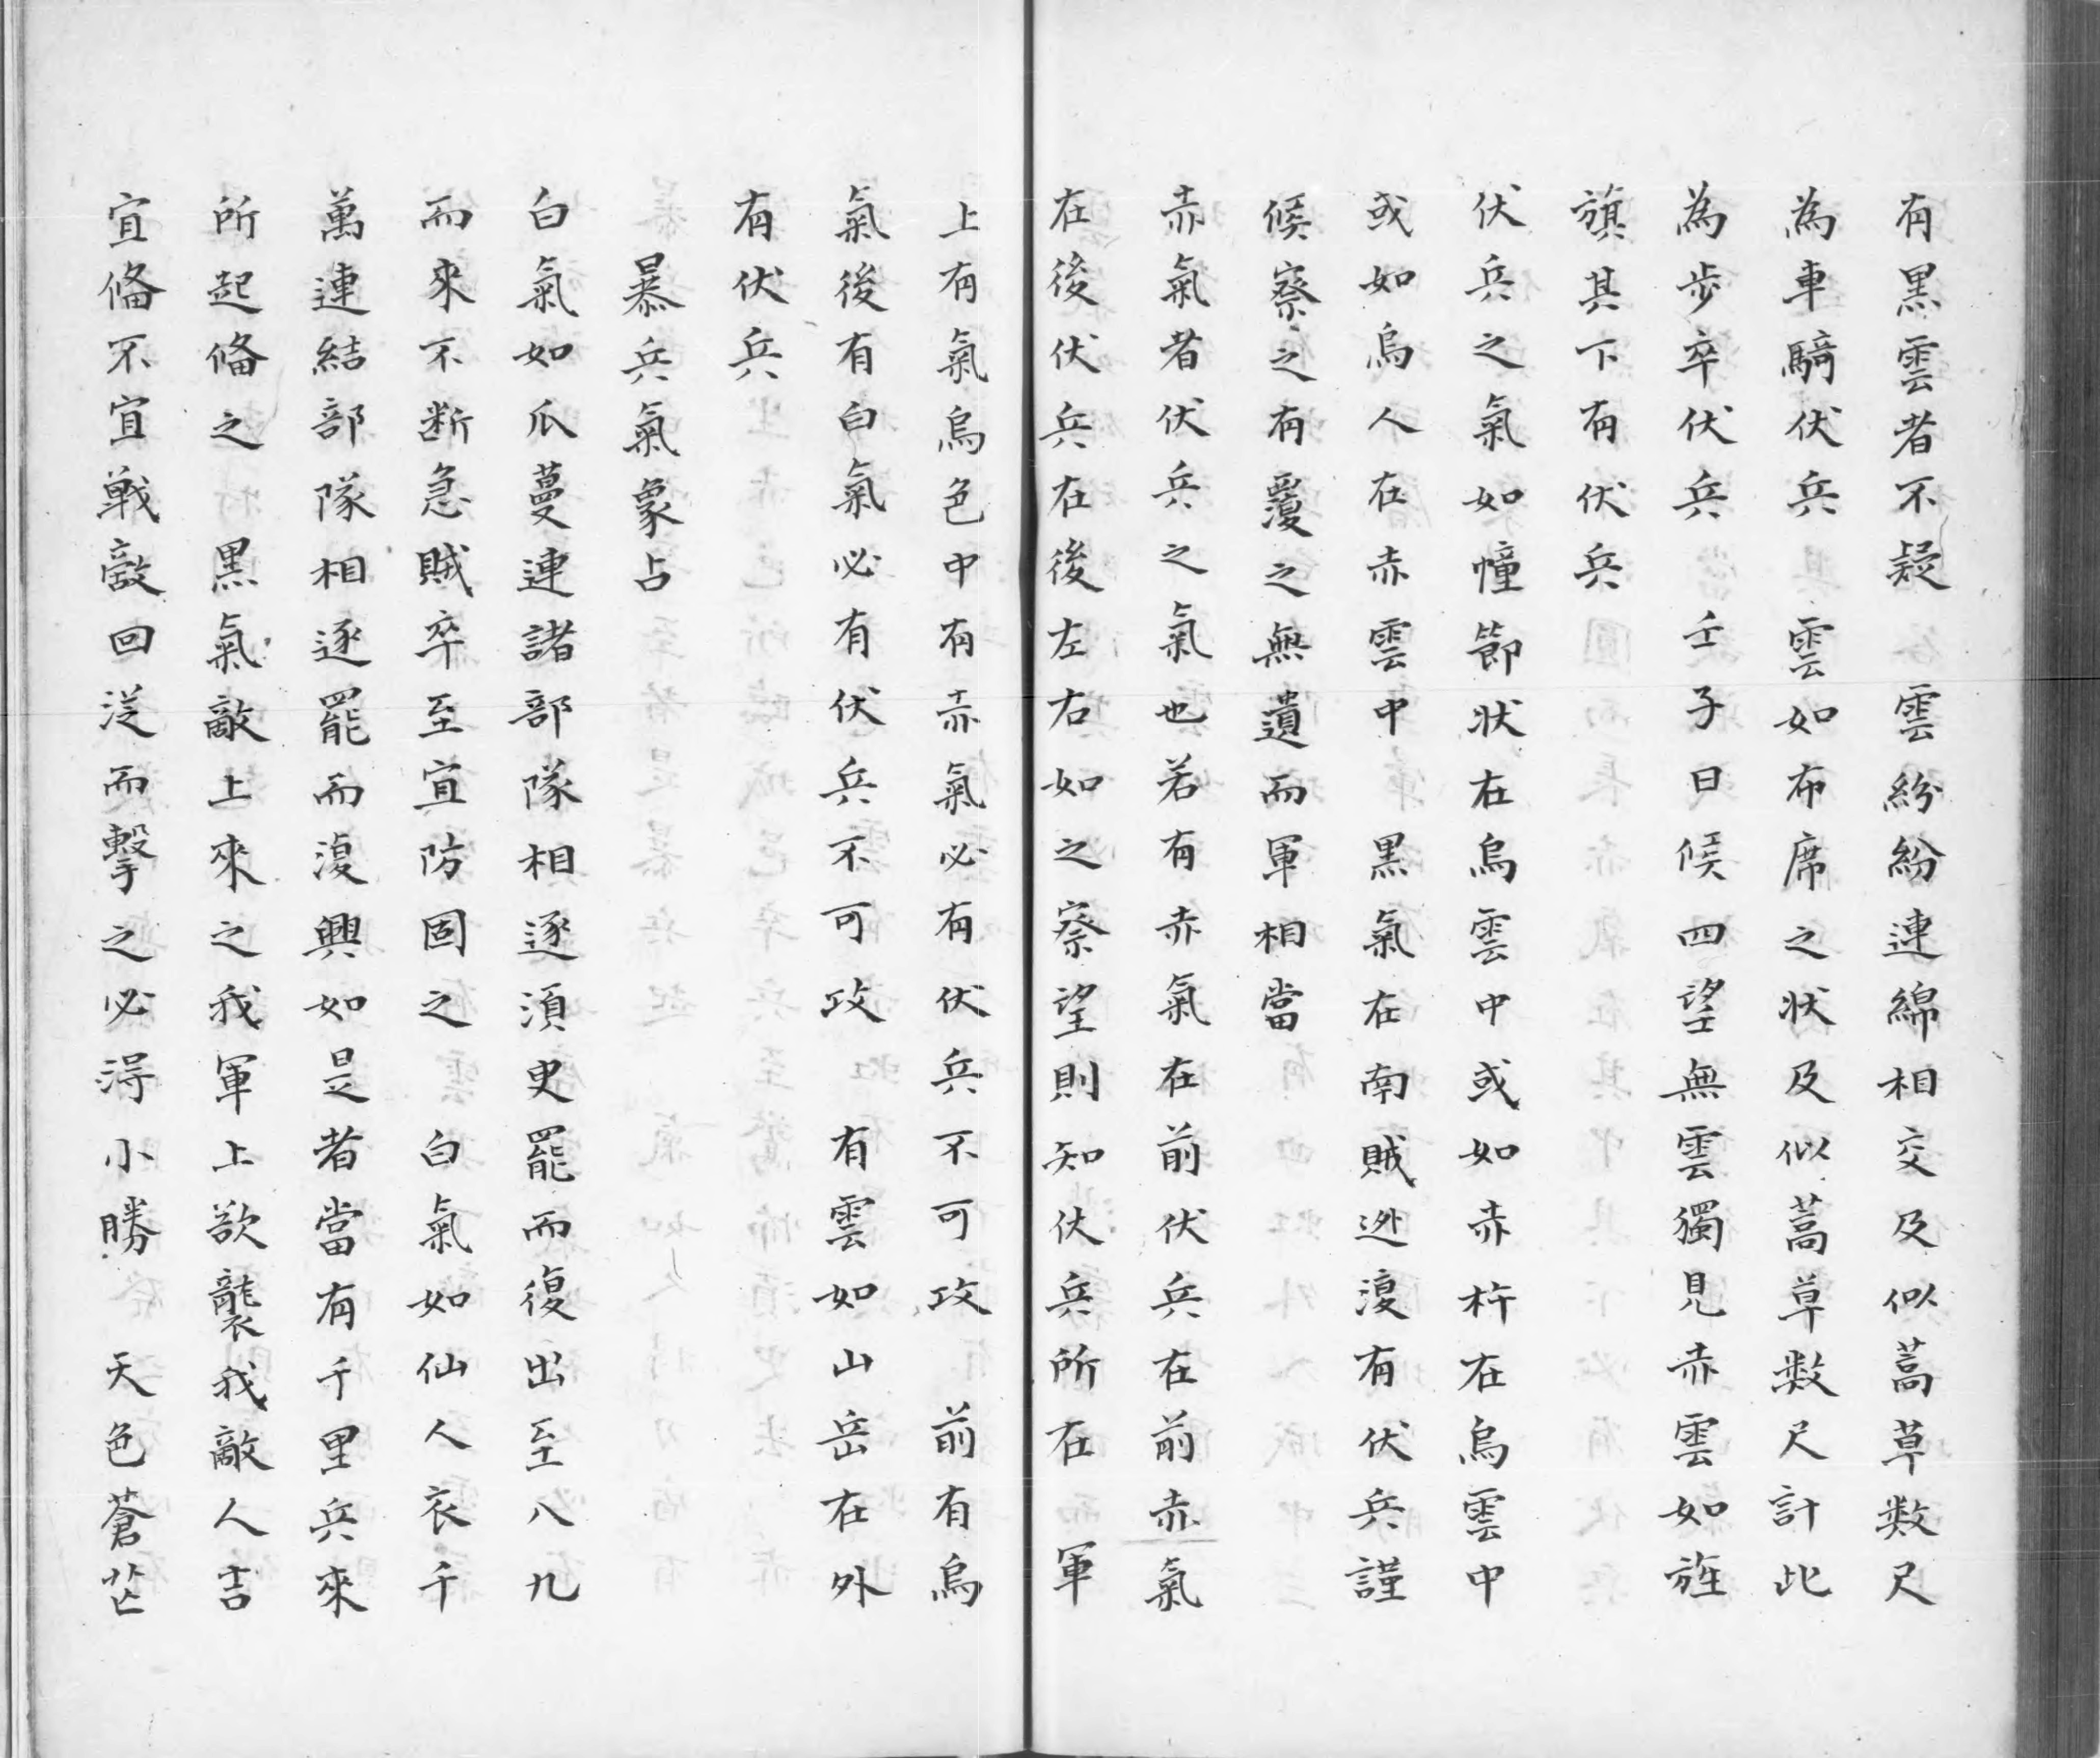 有黒雲者不疑　雲紛紛連綿相交及似蒿草数尺
為車騎伏兵　雲如布席之状及似蒿草数尺計此
為步卒伏兵　壬子日候四望無雲獨見赤雲如旌
旗其下有伏兵
伏兵之氣如幢節状在烏雲中或如赤杵在烏雲中
或如烏人在赤雲中　黒氣在南賊迯復有伏兵謹
候察之有覆之無遺而軍相當
赤氣者伏兵之氣也若有赤氣在前伏兵在前赤氣
在後伏兵在後左右如之察望則知伏兵所在　軍
上有氣烏色中有赤氣必有伏兵不可攻　前有烏
氣後有白氣必有伏兵不可攻　有雲如山岳在外
有伏兵
暴兵氣象占
白氣如瓜蔓連諸部隊相逐須臾罷而復出至八九
而來不断急賊卒至宜防固之　白氣如仙人衣千
萬連結部隊相逐罷而復興如是者當有千里兵來
所起俻之　黒氣敵上來之我軍上欲襲我敵人吉
宜俻不宜戦敵回従而擊之必淂小勝　天色蒼茫